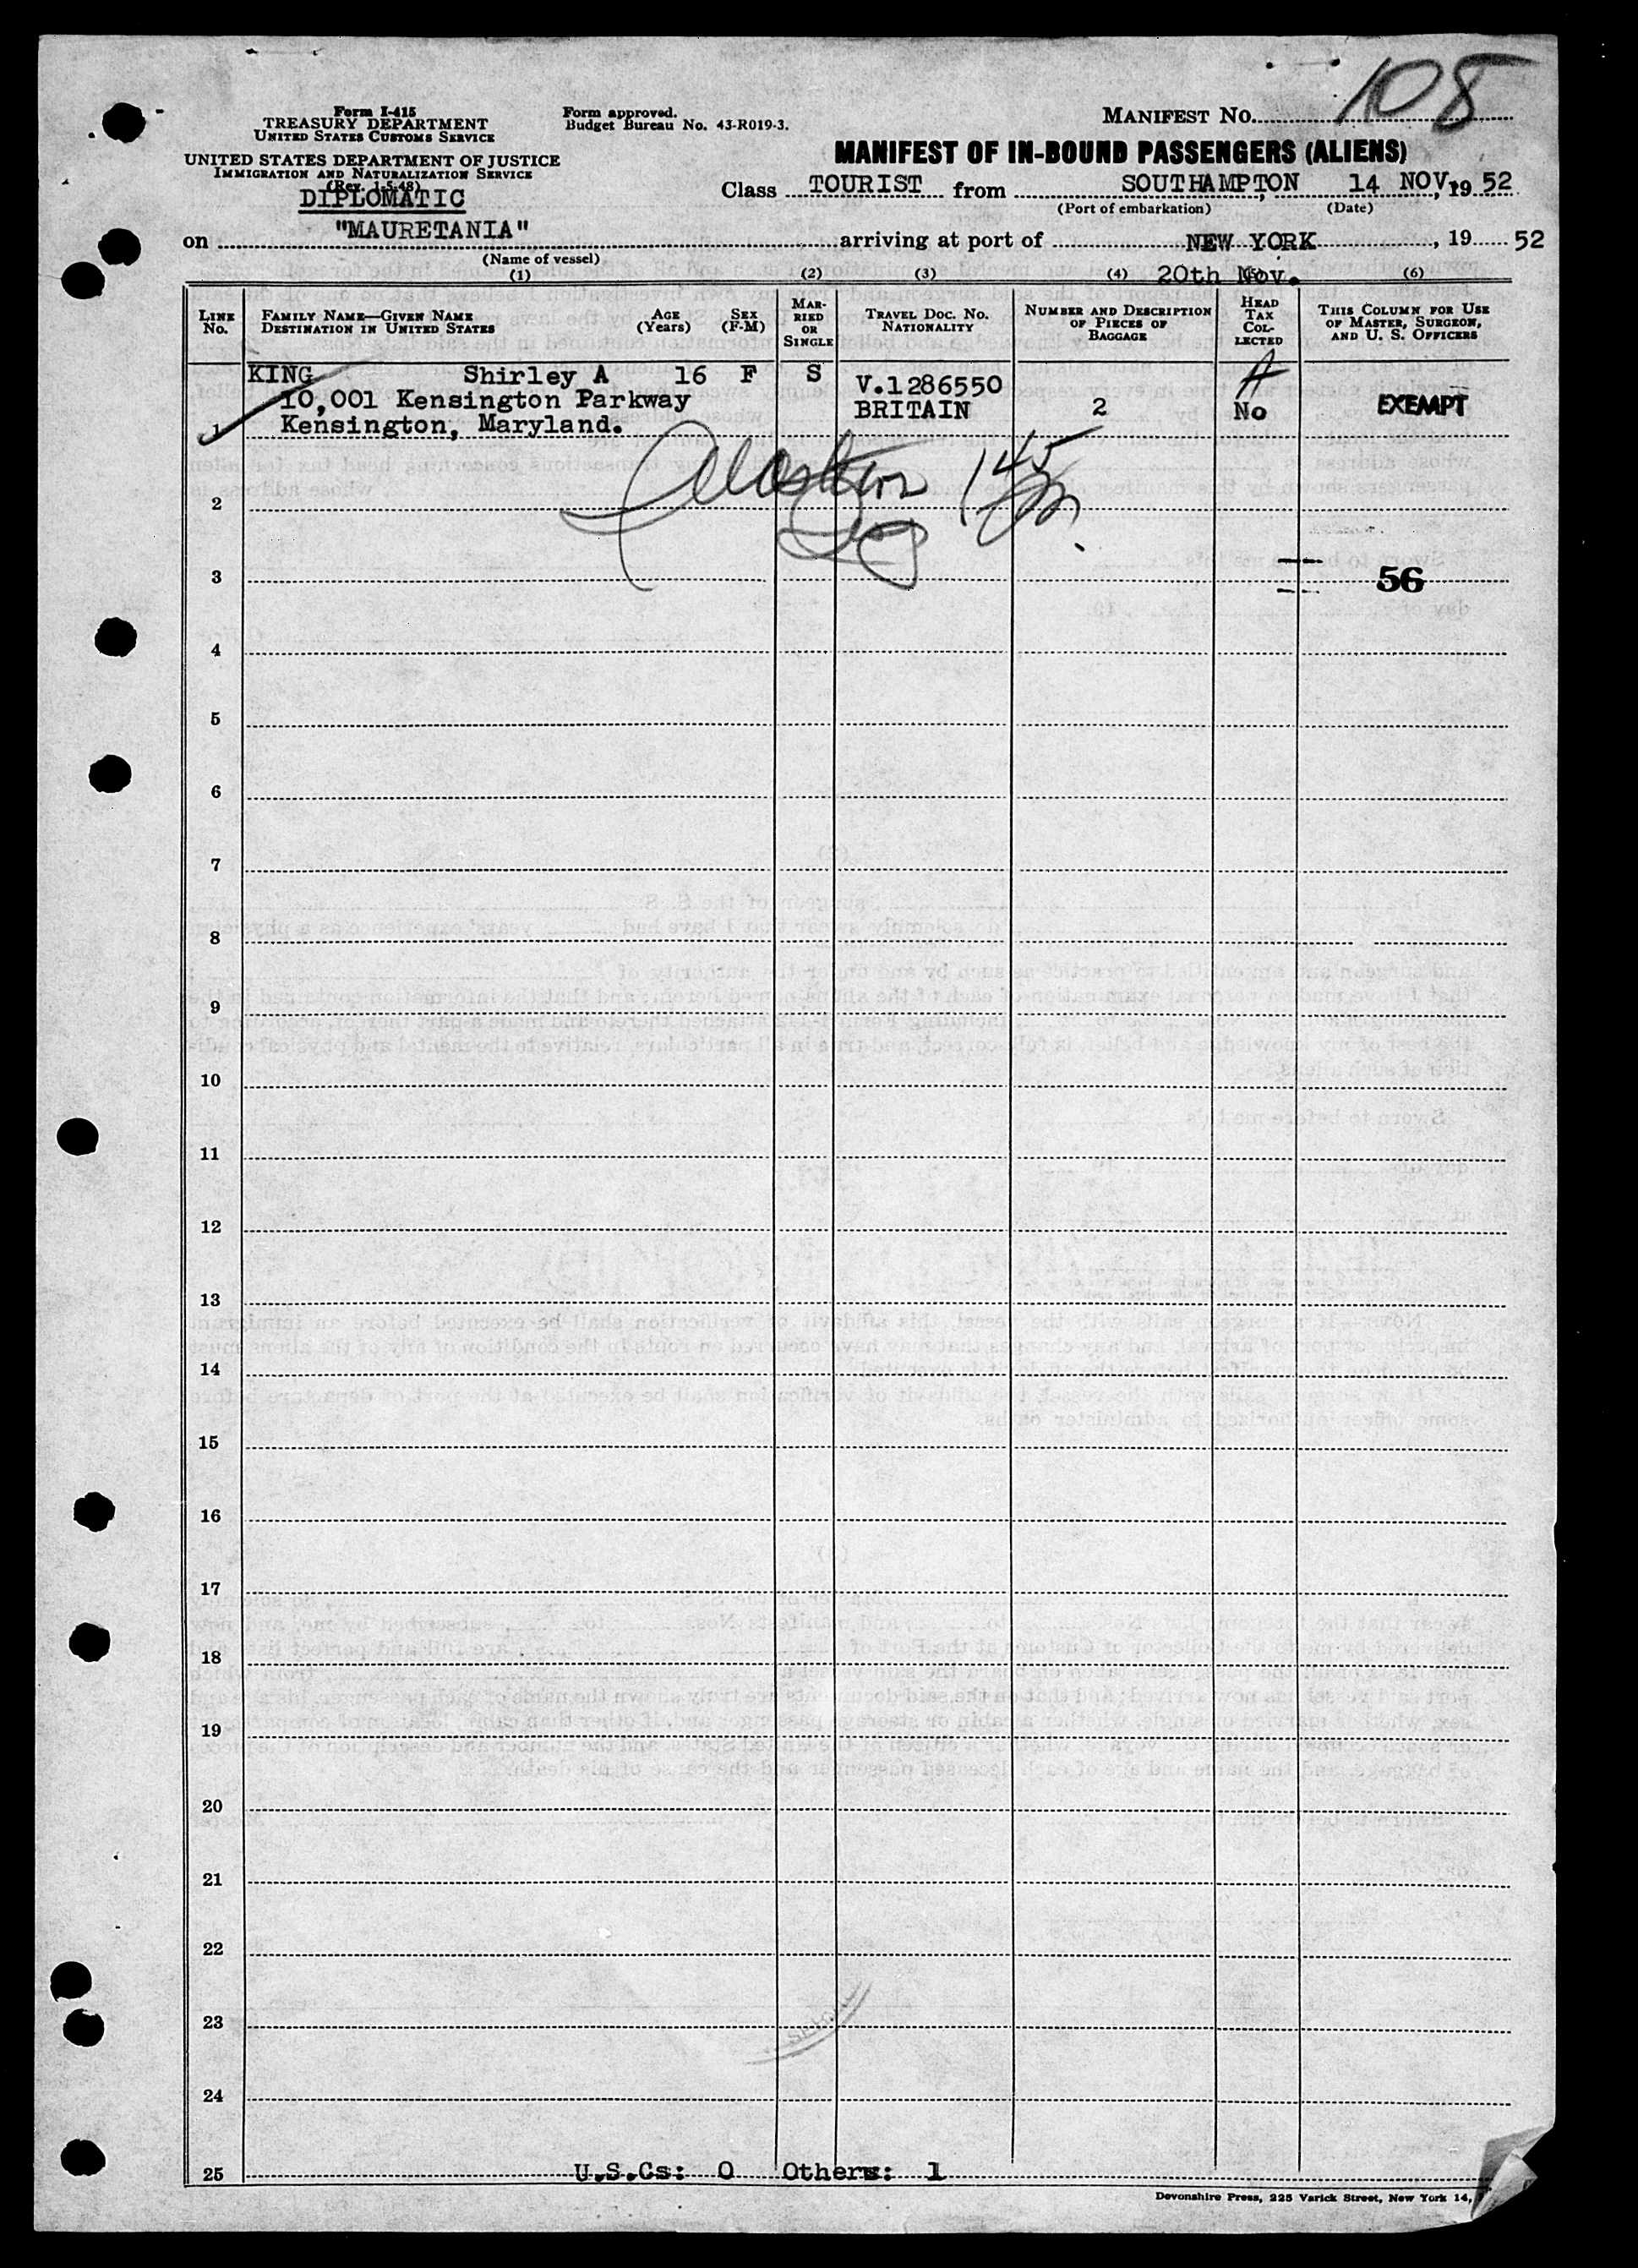 108
Form I-415
TREASURY DEPARTMENT
UNITED STATES CUSTOMS SERVICE
UNITED STATES DEPARTMENT OF JUSTICE
IMMIGRATION AND NATURALIZATION SERVICE
(Rev. 1-5-48)
DIPLOMATIC
Form approved.
Budget Bureau No. 43-R019-3.
MANIFEST NO.
MANIFEST OF IN-BOUND PASSENGERS (ALIENS)
Class TOURIST from SOUTHAMPTON, 14 NOV, 19 52
(Port of embarkation) (Date)
on "MAURETANIA" arriving at port of NEW YORK, 19 52
(Name of vessel)
20th Nov.
(1) (2) (3) (4) (6)
LINE No. FAMILY NAME—GIVEN NAME DESTINATION IN UNITED STATES AGE (Years) SEX (F-M) MARRIED OR SINGLE TRAVEL DOC. NO. NATIONALITY NUMBER AND DESCRIPTION OF PIECES OF BAGGAGE HEAD TAX COLLECTED THIS COLUMN FOR USE OF MASTER, SURGEON, AND U. S. OFFICERS
KING Shirley A 16 F S V.1286550
10,001 Kensington Parkway BRITAIN 2 No EXEMPT
1 Kensington, Maryland.
145
2
3 56
4
5
6
7
8
9
10
11
12
13
14
15
16
17
18
19
20
21
22
23
24
25 U.S.Cs: 0 Others: 1
Devonshire Press, 225 Varick Street, New York 14,